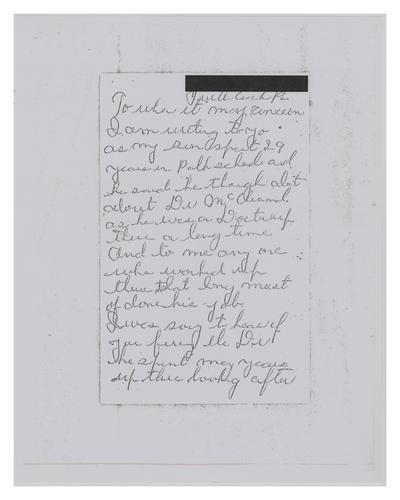 To whom it may concern
I am writing to yo
as my son spent 29
years in Polk school and
he said he though alot
about Dr Mc Cleand
as he was a Doctor up
there a long time
And to me any one
who worked up
there that long must
of done his job
I was sory to hear if
you firing the Dr
he spent many years
up there looking after